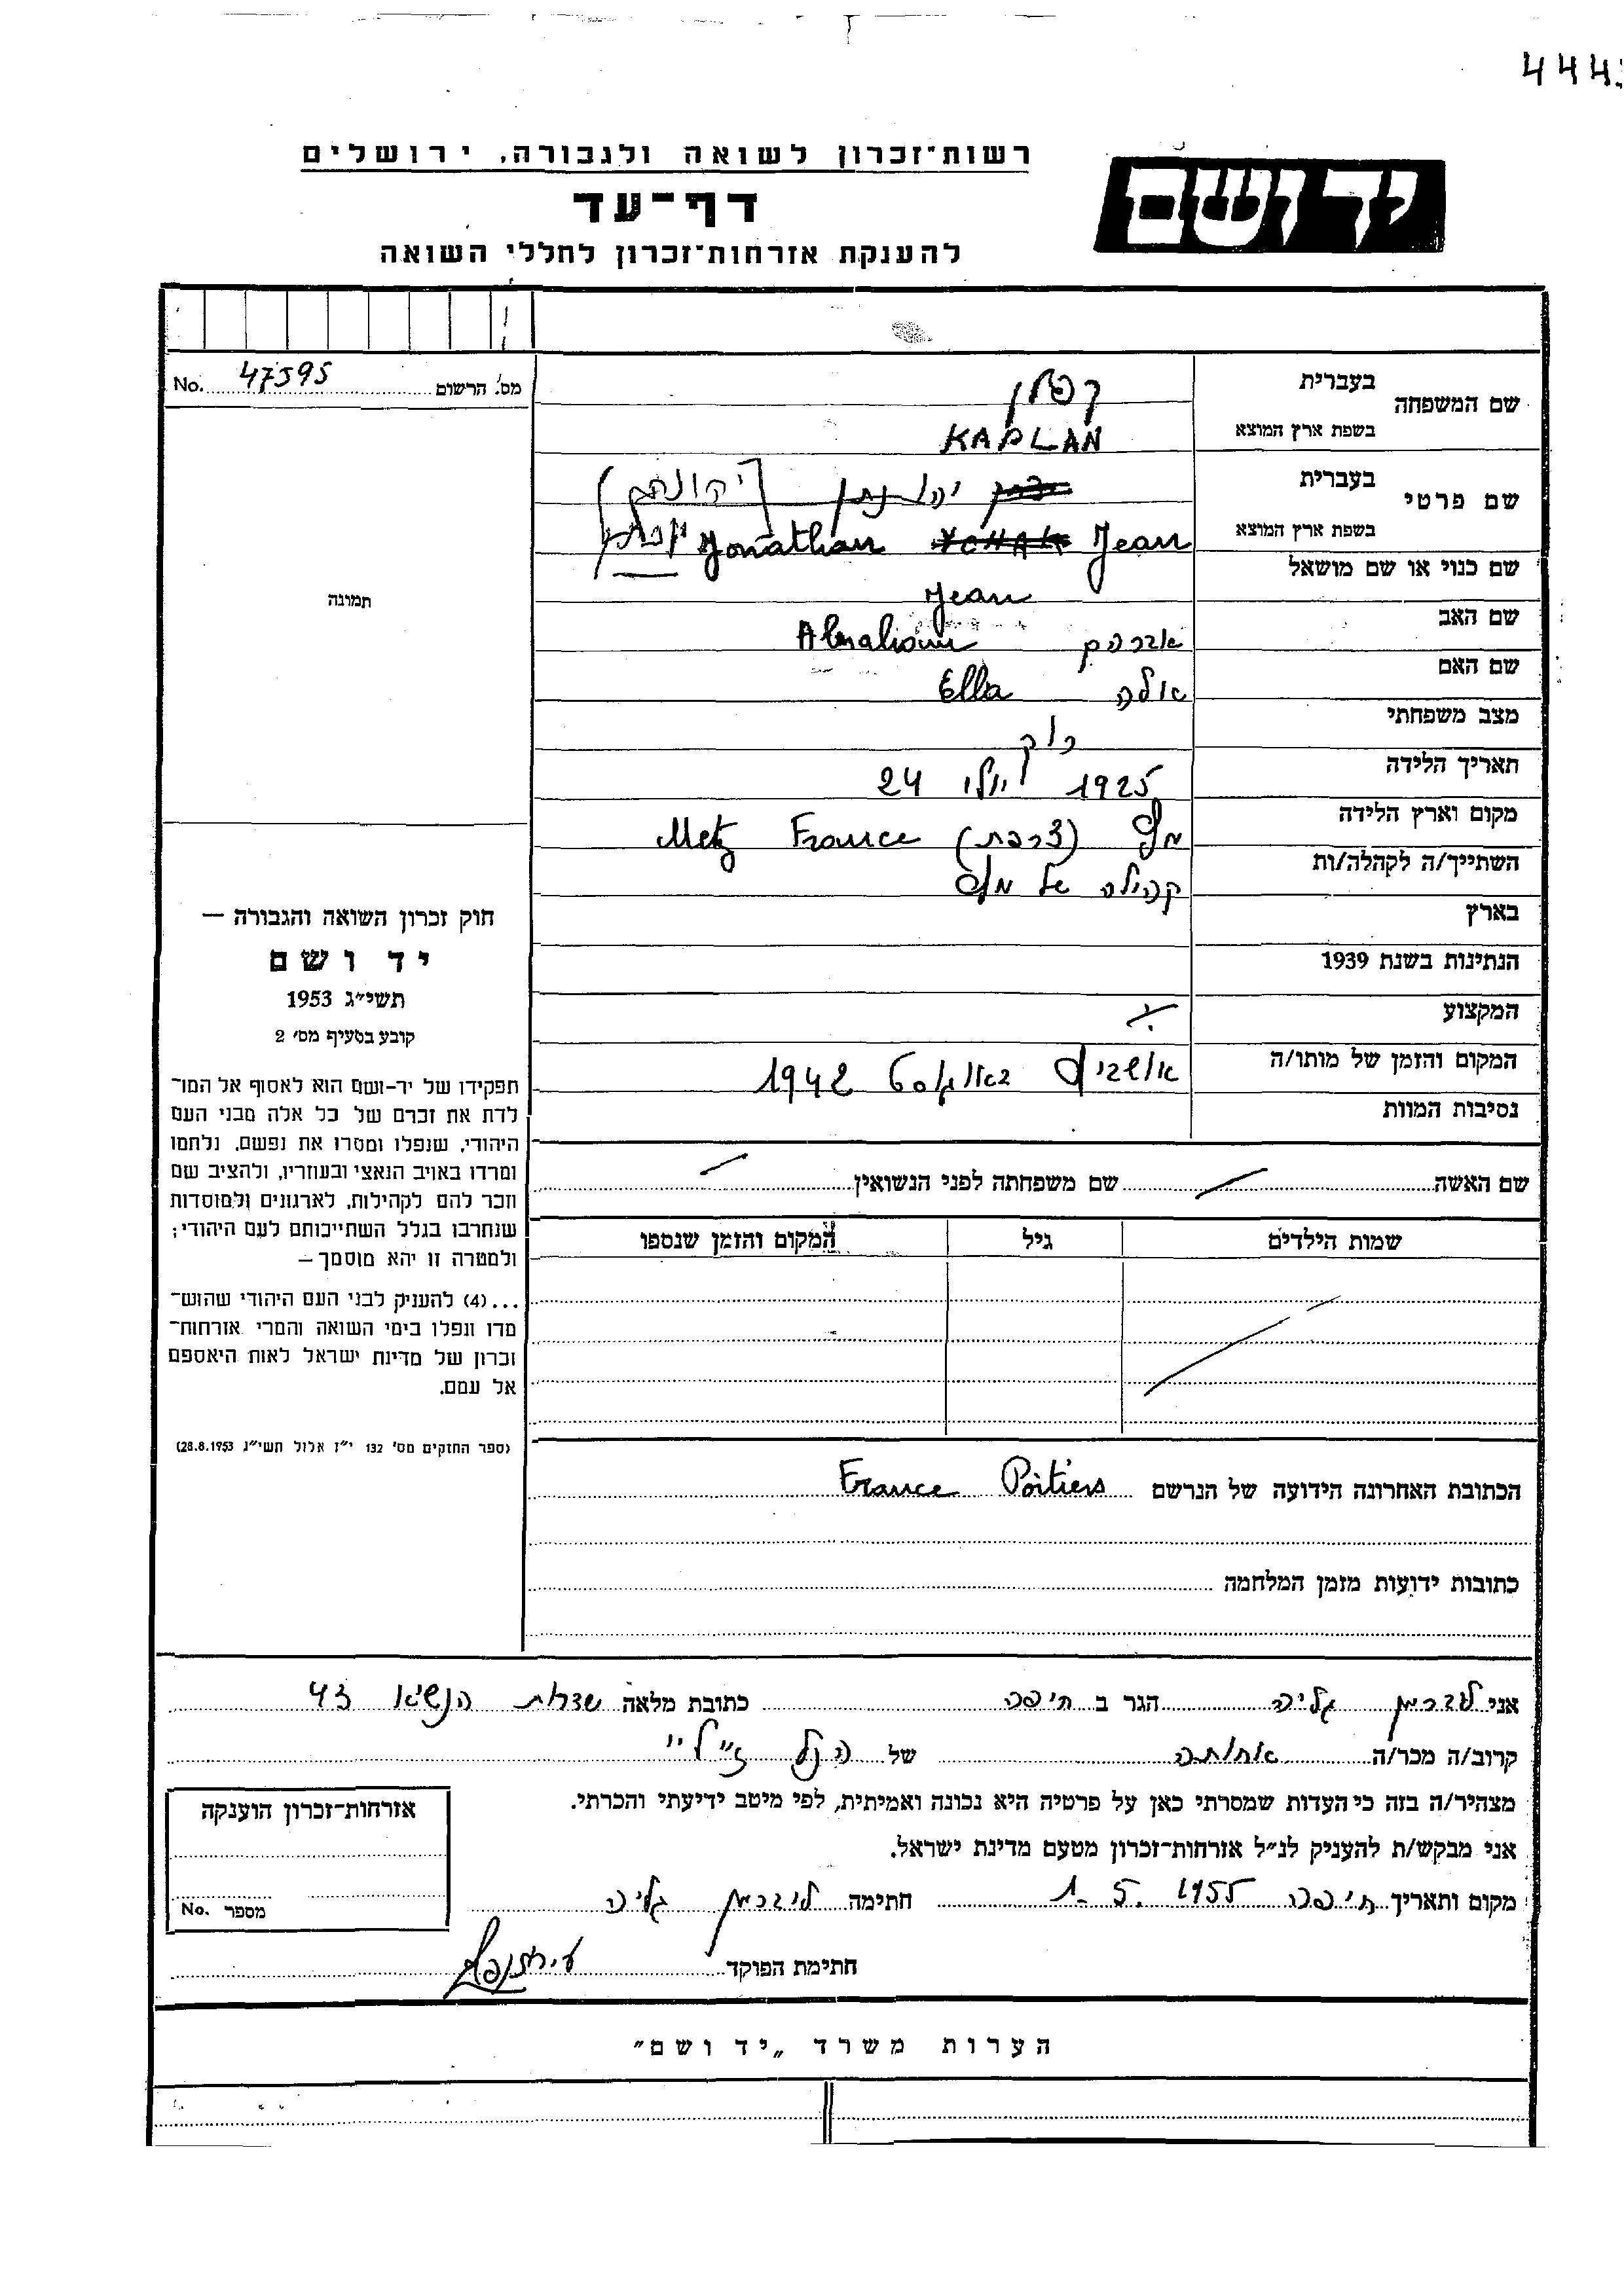 רשות־זכרון לשואה ולגבורה, ירושלים
יד ושם
דף־עד
להענקת אזרחות־זכרון לחללי השואה
No. 47595 מס. הרשום
תמונה
שם המשפחה בעברית קפלן
בשפת ארץ המוצא KAPLAN
שם פרטי בעברית יהונתן
בשפת ארץ המוצא Jean Jonathan
שם כנוי או שם מושאל Jean
שם האב אברהם Abraham
שם האם אלה Ella
מצב משפחתי רוק
תאריך הלידה 24 יולי 1925
מקום וארץ הלידה מץ (צרפת) Metz France
השתייך/ה לקהלה/ות קהילה של מץ
בארץ
הנתינות בשנת 1939
המקצוע
המקום והזמן של מותו/ה אושביץ באוגוסט 1942
נסיבות המוות
שם האשה שם משפחתה לפני הנשואין
שמות הילדים גיל המקום והזמן שנספו
חוק זכרון השואה והגבורה —
יד ושם
תשי״ג 1953
קובע בסעיף מס׳ 2
תפקידו של יד-ושם הוא לאסוף אל המו־
לדת את זכרם של כל אלה מבני העם
היהודי, שנפלו ומסרו את נפשם, נלחמו
ומרדו באויב הנאצי ובעוזריו, ולהציב שם
וזכר להם לקהילות, לארגונים ולמוסדות
שנחרבו בגלל השתייכותם לעם היהודי;
ולמטרה זו יהא מוסמך —
...(4) להעניק לבני העם היהודי שהוש־
מדו ונפלו בימי השואה והמרי אזרחות־
זכרון של מדינת ישראל לאות היאספם
אל עמם.
(ספר החוקים מס׳ 132 י״ז אלול תשי״ג 28.8.1953)
הכתובת האחרונה הידועה של הנרשם Poitiers France
כתובות ידועות מזמן המלחמה
אני ליברמן גליה הגר ב חיפה כתובת מלאה שדרות הנשיא 43
קרוב/ה מכר/ה אחותה של
מצהיר/ה בזה כי העדות שמסרתי כאן על פרטיה היא נכונה ואמיתית, לפי מיטב ידיעתי והכרתי.
אני מבקש/ת להעניק לנ״ל אזרחות־זכרון מטעם מדינת ישראל.
מקום ותאריך חיפה 1.5.1955 חתימה ליברמן גליה
חתימת הפוקד
אזרחות־זכרון הוענקה
מספר No.
הערות משרד „יד ושם״